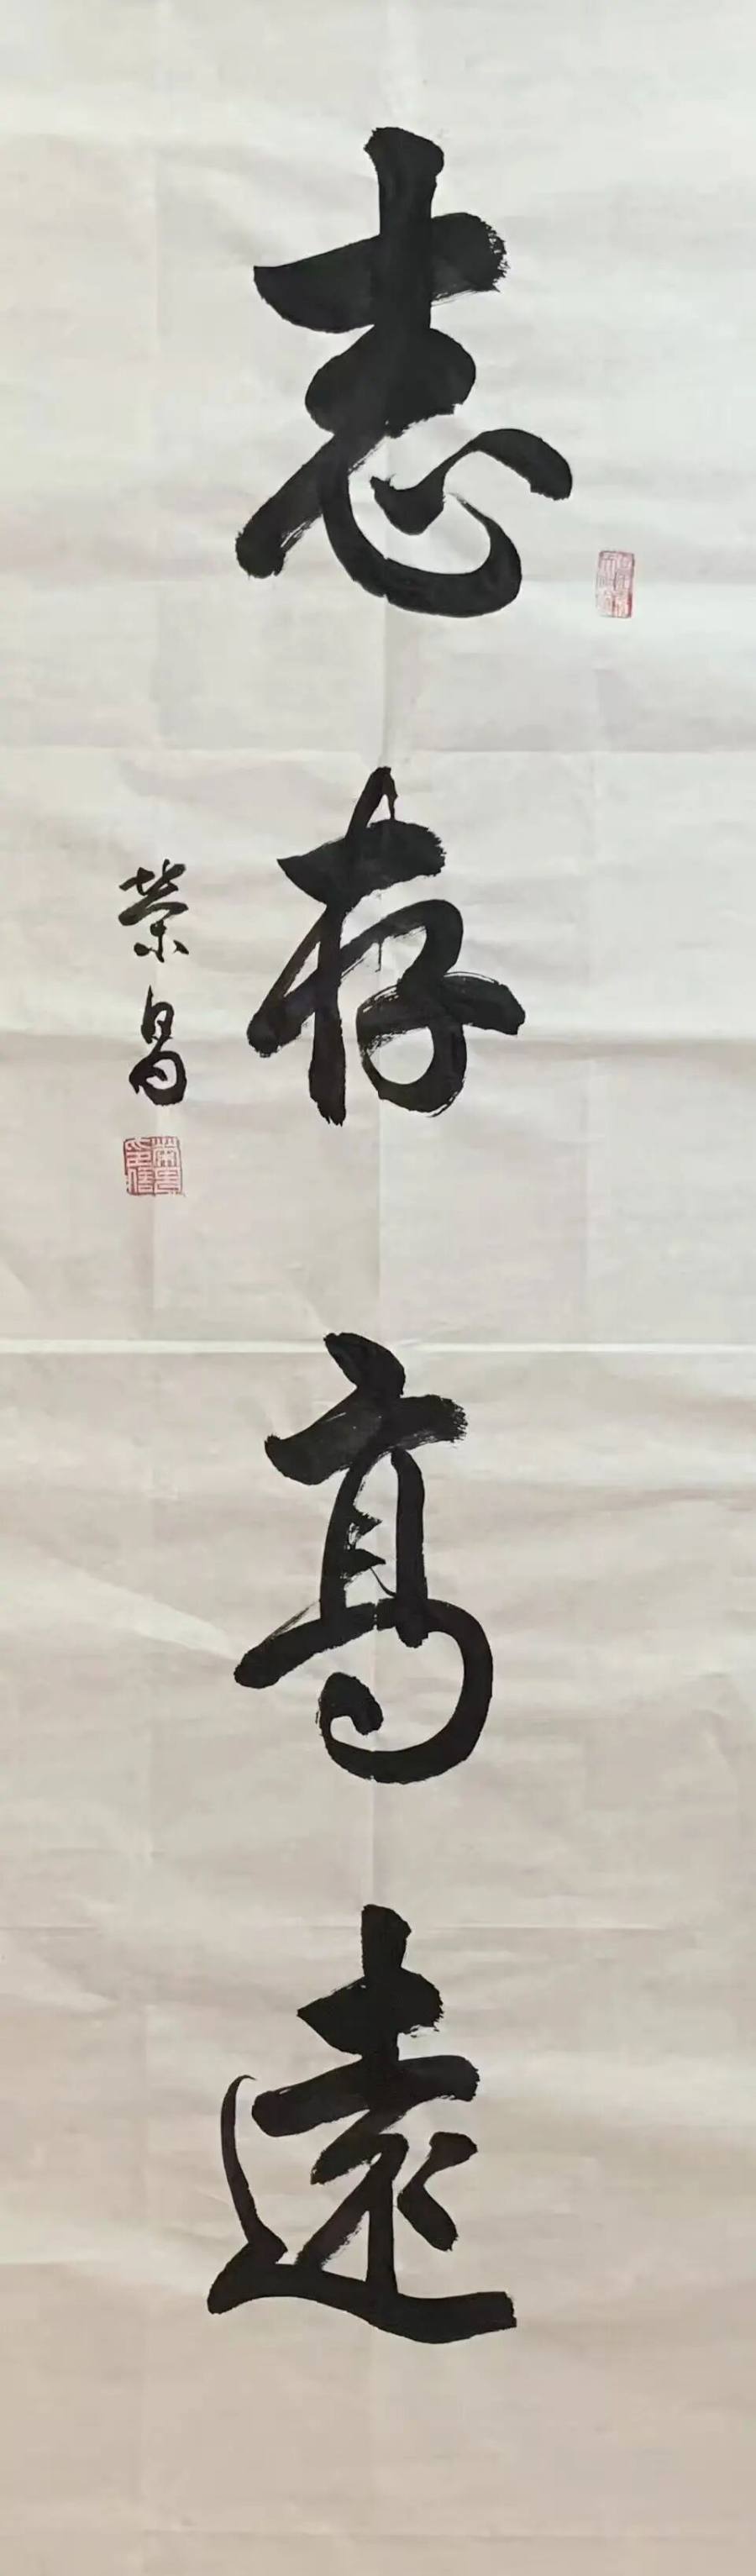 志存高遠
荣昌